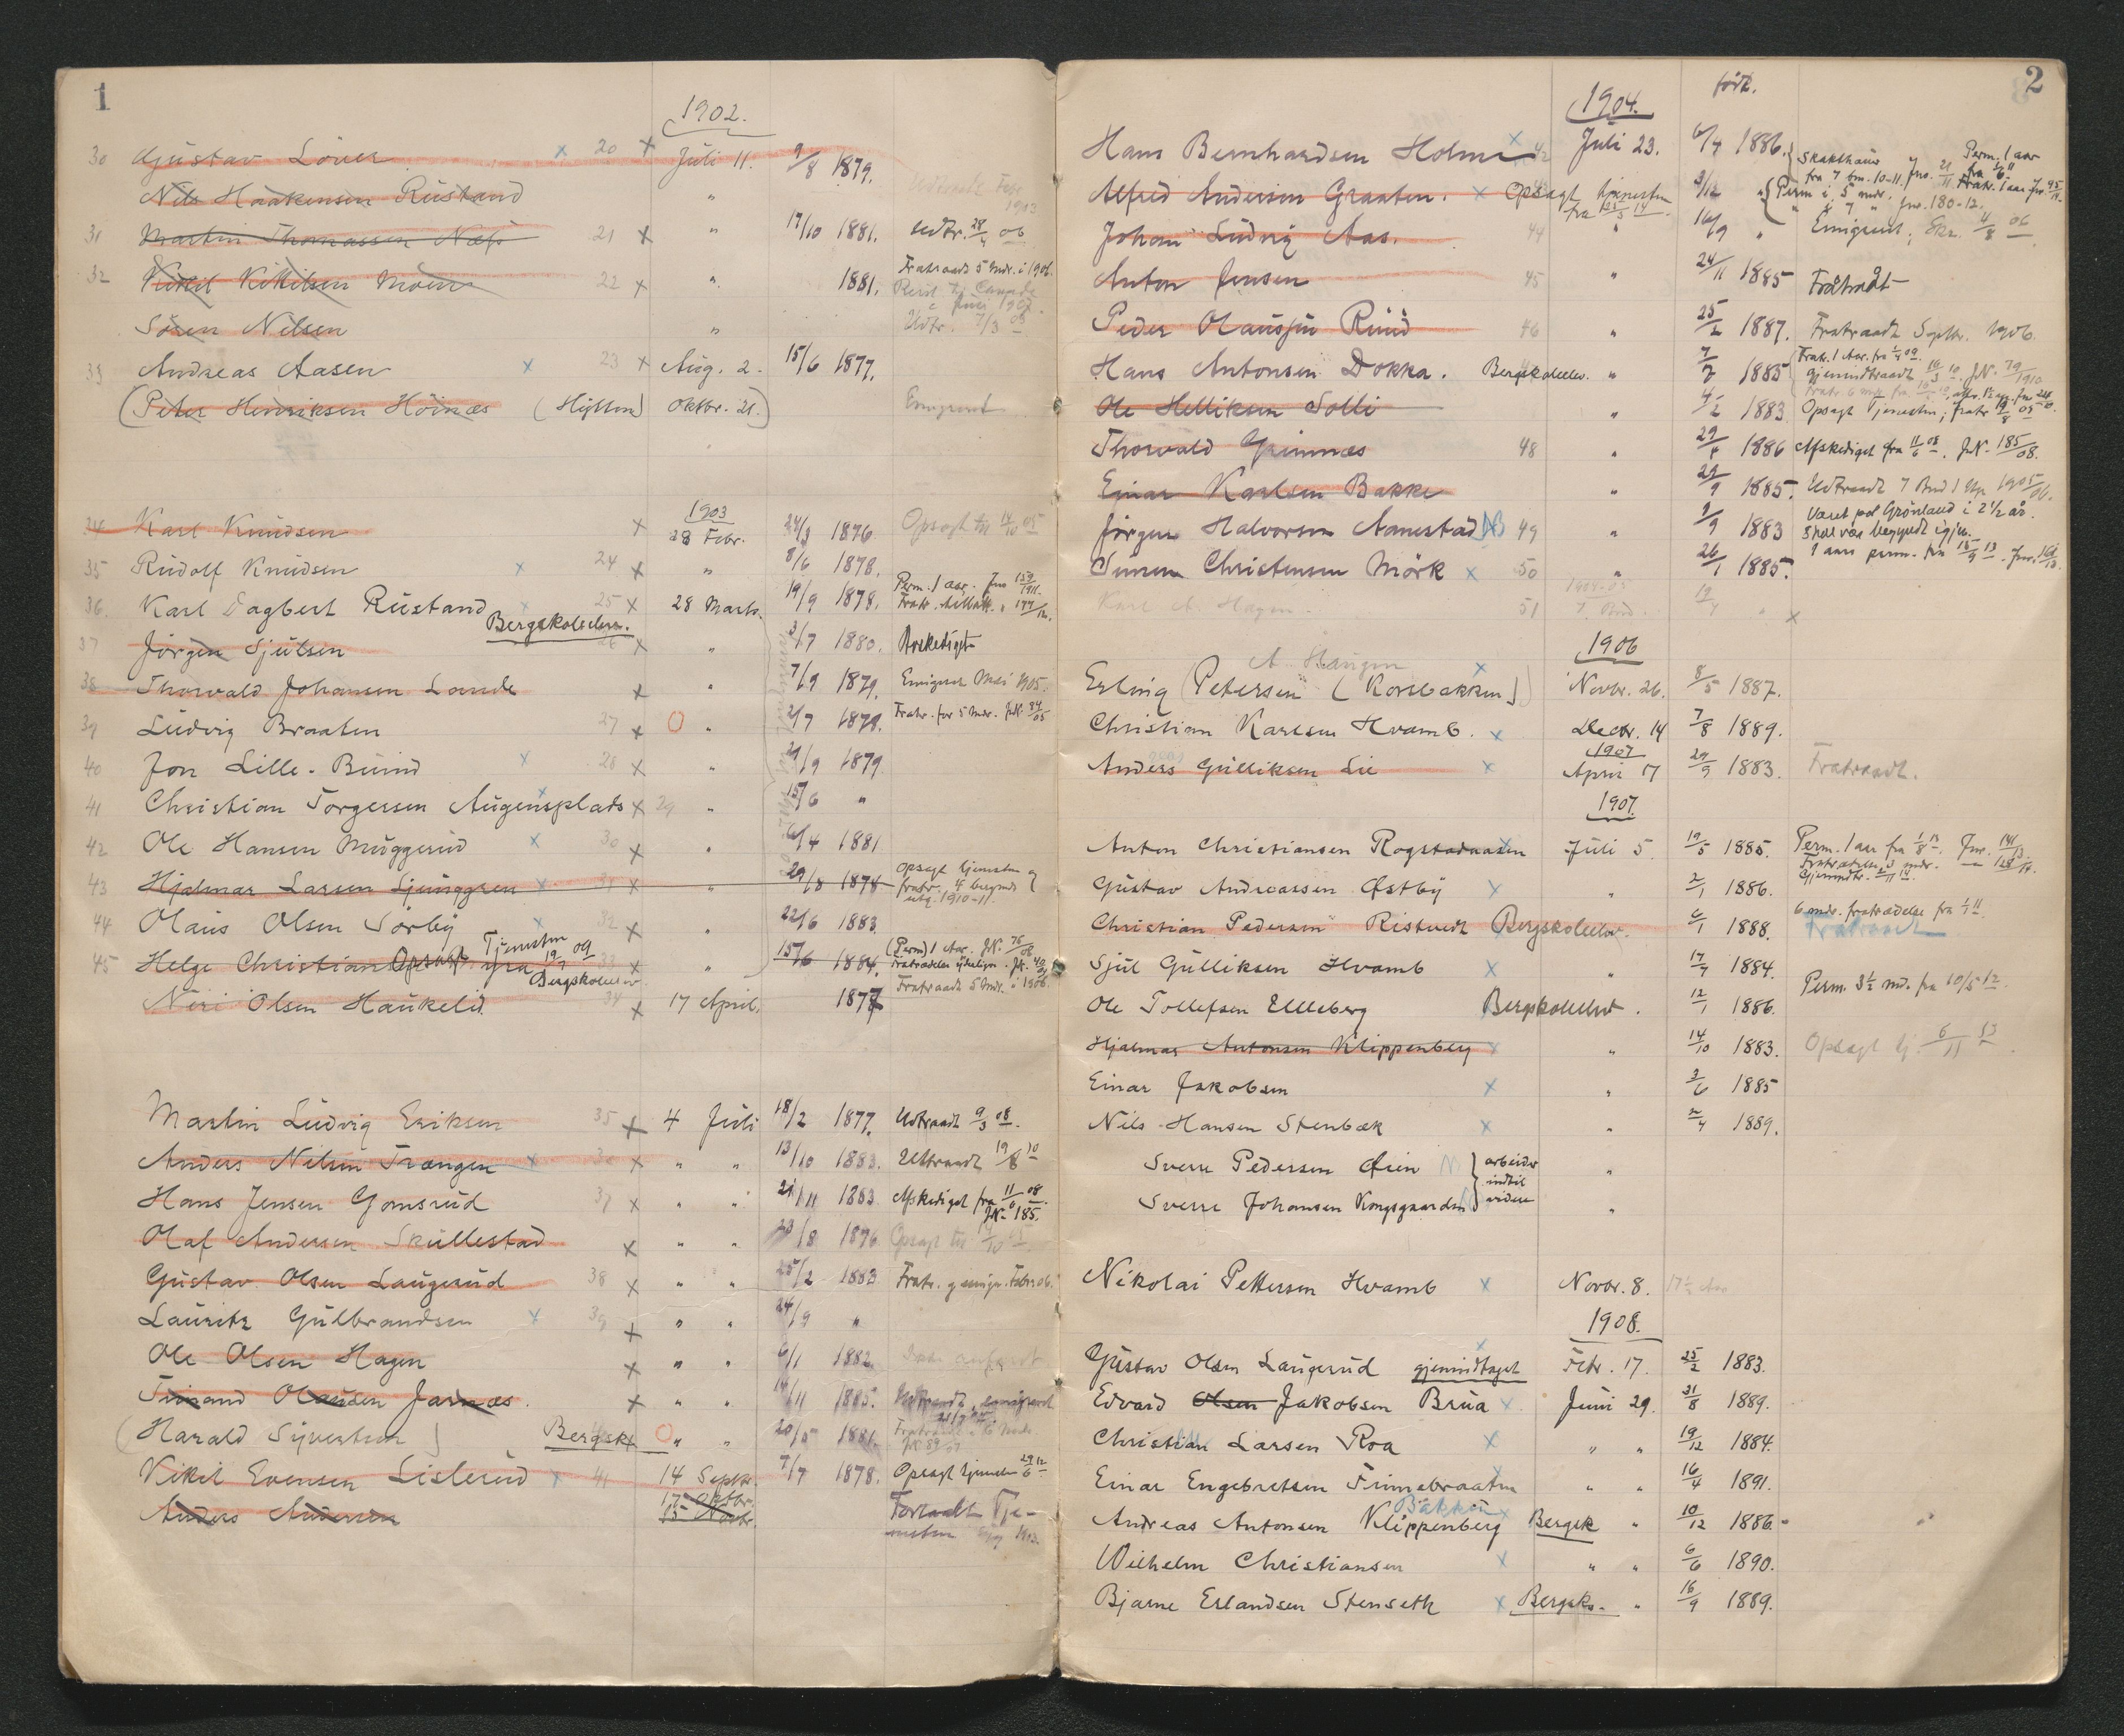 1
1902.
30 Gustav Löver × 20 × Juli 11. 9/8 1879.
Nils Haakensen Rustand " Udtraadt Febr. 1903
31 Martin Thomassen Næss 21 × " 17/10 1881. Udtr. 28/4 06
32 Kittil Kittilsen Moen 22 × " 1881. Fratraadt 5 Mdr. i 1906.
Reist til Canada
i Juni 1907.
Sören Nilsen " Udtr. 7/3 03
33 Andreas Aasen × 23 × Aug. 2. 15/6 1877.
(Peter Henriksen Höinæs (Hytten) Oktbr. 21.) Emigreret
1903
34 Karl Knudsen × 28 Febr. 24/3 1876 Opsagt til 14/10 05
35 Rudolf Knudsen × 24 × " 8/6 1878.
36. Karl Dagbert Rustand × 25 × 28 Marts. 19/9 1878. Perm. 1 aar. Jno 159/1911.
Bergskoleelev. Fratr. " 177/12.
37 Jörgen Sjulsen 26 × " 3/7 1880. Avskediget
38 Thorvald Johansen Lande × " 7/9 1879. Emigreret Mai 1905.
39 Ludvig Braaten 27 × O " 2/7 1879. Fratr. for 5 Mdr. JN. 84/05
40 Jon Lille-Buind × 28 × " 29/9 1879
41 Christian Torgersen Augensplads × × 29 " 15/6 "
42 Ole Hansen Muggerud × 30 × " 6/4 1881
43 Hjalmar Larsen Ljunggren × 31 × " 29/8 1878 Opsagt tjenesten og
fratr. 4 begynd
1910-11.
44 Olaus Olsen Sörby × 32 × " 22/6 1883.
45 Helge Christian Opsagt Tjenesten fra 19/7 09 33 × " 15/6 1884. (Perm) 1 Aar. JN. 76/08
Bergskoleelev Fratrædelse yderligere. JN. 40/09
Neri Olsen Haukelid. 34 × 17 April. 1877 Fratraadt 5 Mdr. i 1906.
Martin Ludvig Eriksen 35 × 4 Juli 18/2 1877. Udtraadt 9/3 08.
Anders Nilsen Trangen × 36 × " " 13/10 1883. Udtraadt 19/8 10
Hans Jensen Gomsrud 37 × " " 21/11 1883 Afskediget fra 11/6 08.
JN- 185.
Olaf Andersen Skullestad × " " 23/8 1876 Opsagt til 14/10 05.
Gustav Olsen Laugerud 38 × " " 25/2 1883 Fratr. g emigr. Febr. 06.
Lauritz Gulbrandsen × 39 × " " 24/9 "
Ole Olsen Hagen × " " 6/1 1882
Finand Olausen Jarnæs. × " " /11 1885. Udtraadt, emigreret
(Harald Syvertsen) Bergsk. O " " 20/5 1881. Fratraadt i 6 Mndr.
JN 89/07
Kitil Evensen Lislerud × 41 14 Septbr. 7/7 1878. Opsagt tjenesten 29/6 12
Anders Andersen 17 Oktbr. 15 Novbr. Forladt Tje-
nesten 1903.
2
1904. född.
Hans Bernhardsen Holm × 42 Juli 23. 6/7 1886. Skakthauer
fra 7 bm. 10-11. Jno. 21/11 Perm. 1 aar
fra 1/6 11
Fratr. 1 aar Jno. 95/11
Alfred Andersen Graaten. × Opsagt tjenesten fra 25/5 14 3/12 " Perm i 5 mdr.
" i 7 " Jno. 180-12.
Johan Ludvig Aas. 44 " 16/9 " Emigreret, Skr. 4/8 06
Anton Jensen 45 " 24/11 1885 Fratraadt
Peder Olaussen Ruud 46 " 25/2 1887. Fratraadt Septbr. 1906.
Hans Antonsen Dokka. Bergskoleelev. " 7/7 1885 Fratr. 1 Aar. fra 1/4 09.
gjenindtraadt 16/3 10 JN. 79/1910
Ole Helliksen Solli " 4/2 1883 Opsagt Tjenesten; fratr. 19/8 05
Thorvald Grimnæs 48 " 29/8 1886 Afskediget fra 11/6 08. JN- 185/08.
Einar Karlsen Bakke " 29/9 1885. Udtraadt 7 Bud 1 Ug. 1905/06.
Jörgen Halvorsen Aanestad NB 49 " 9/9 1883 Været paa Grönland i 2½ år.
Skal være begyndt igjen.
Simen Christensen Mörk × 50 " 26/1 1885. 1 aars perm. fra 15/9 13. Jno. 161/13.
Karl A. Hagen. 51 1904-05 7 Bud. 19/4 " ×
1906
A. Haugen
Erling (Petersen (Korsbakken) × Novbr. 26. 8/5 1887.
Christian Karlsen Hvamb. × Decbr. 14 7/8 1889.
1907
Anders Gulliksen Lie × April 17 29/9 1883. Fratraadt.
1907.
Anton Christiansen Rogstadaasen × Juli 5. 19/5 1885. Perm. 1 aar fra 1/8 13. Jno. 141/13
Fratrædelse 3 mdr. — 128/14.
Gjenindtr. 2/11 14.
Gustav Andreassen Østby × " 2/1 1886.
6 mdr. fratrædelse fra 1/7 11
Christian Pedersen Ristvedt Bergskoleelev. " 6/1 1888. Fratraadt
Sjul Gulliksen Hvamb × " 17/7 1884.
Ole Tollefsen Elleberg Bergskoleelev. 12/1 1886. Perm. 3½ md. fra 10/5 12.
Hjalmar Antonsen Klippenberg × " 14/10 1883. Opsagt tj. 6/11 12
Einar Jakobsen × " 3/6 1885
Nils Hansen Stenbæk × " 2/4 1889.
Sverre Pedersen Øien } arbeider
indtil
videre "
Sverre Johansen Kongsgaarden "
Nikolai Pettersen Hvamb × Novbr. 8. 17½ Aar
1908.
Gustav Olsen Laugerud gjenindtaget × Febr. 17. 25/2 1883.
Edvard Olsen Jakobsen Brua × Juni 29. 31/8 1889.
Christian Larsen Roa × " " 19/12 1884.
Einar Engebretsen Finnebraaten × " " 16/4 1891.
Bakken
Andreas Antonsen Klippenberg × Bergsk " 10/12 1886.
Wilhelm Christiansen × " " 6/6 1890.
Bjarne Erlandsen Stenseth × Bergsk. " 16/9 1889.